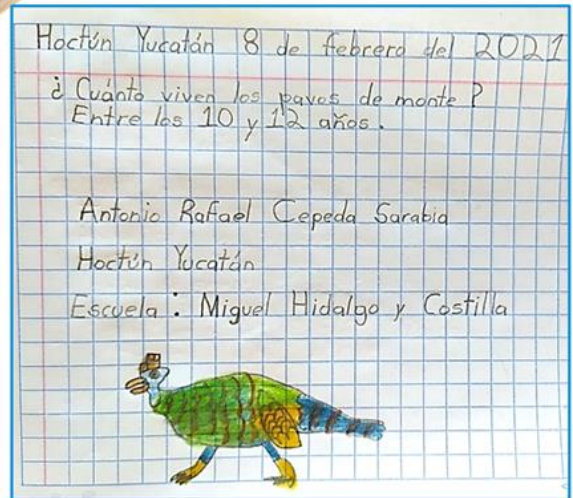 Hoctún Yucatán 8 de febrero del 2021
¿Cuánto viven los pavos de monte?
Entre los 10 y 12 años.
Antonio Rafael Cepeda Sarabia
Hoctún Yucatán
Escuela: Miguel Hidalgo y Costilla